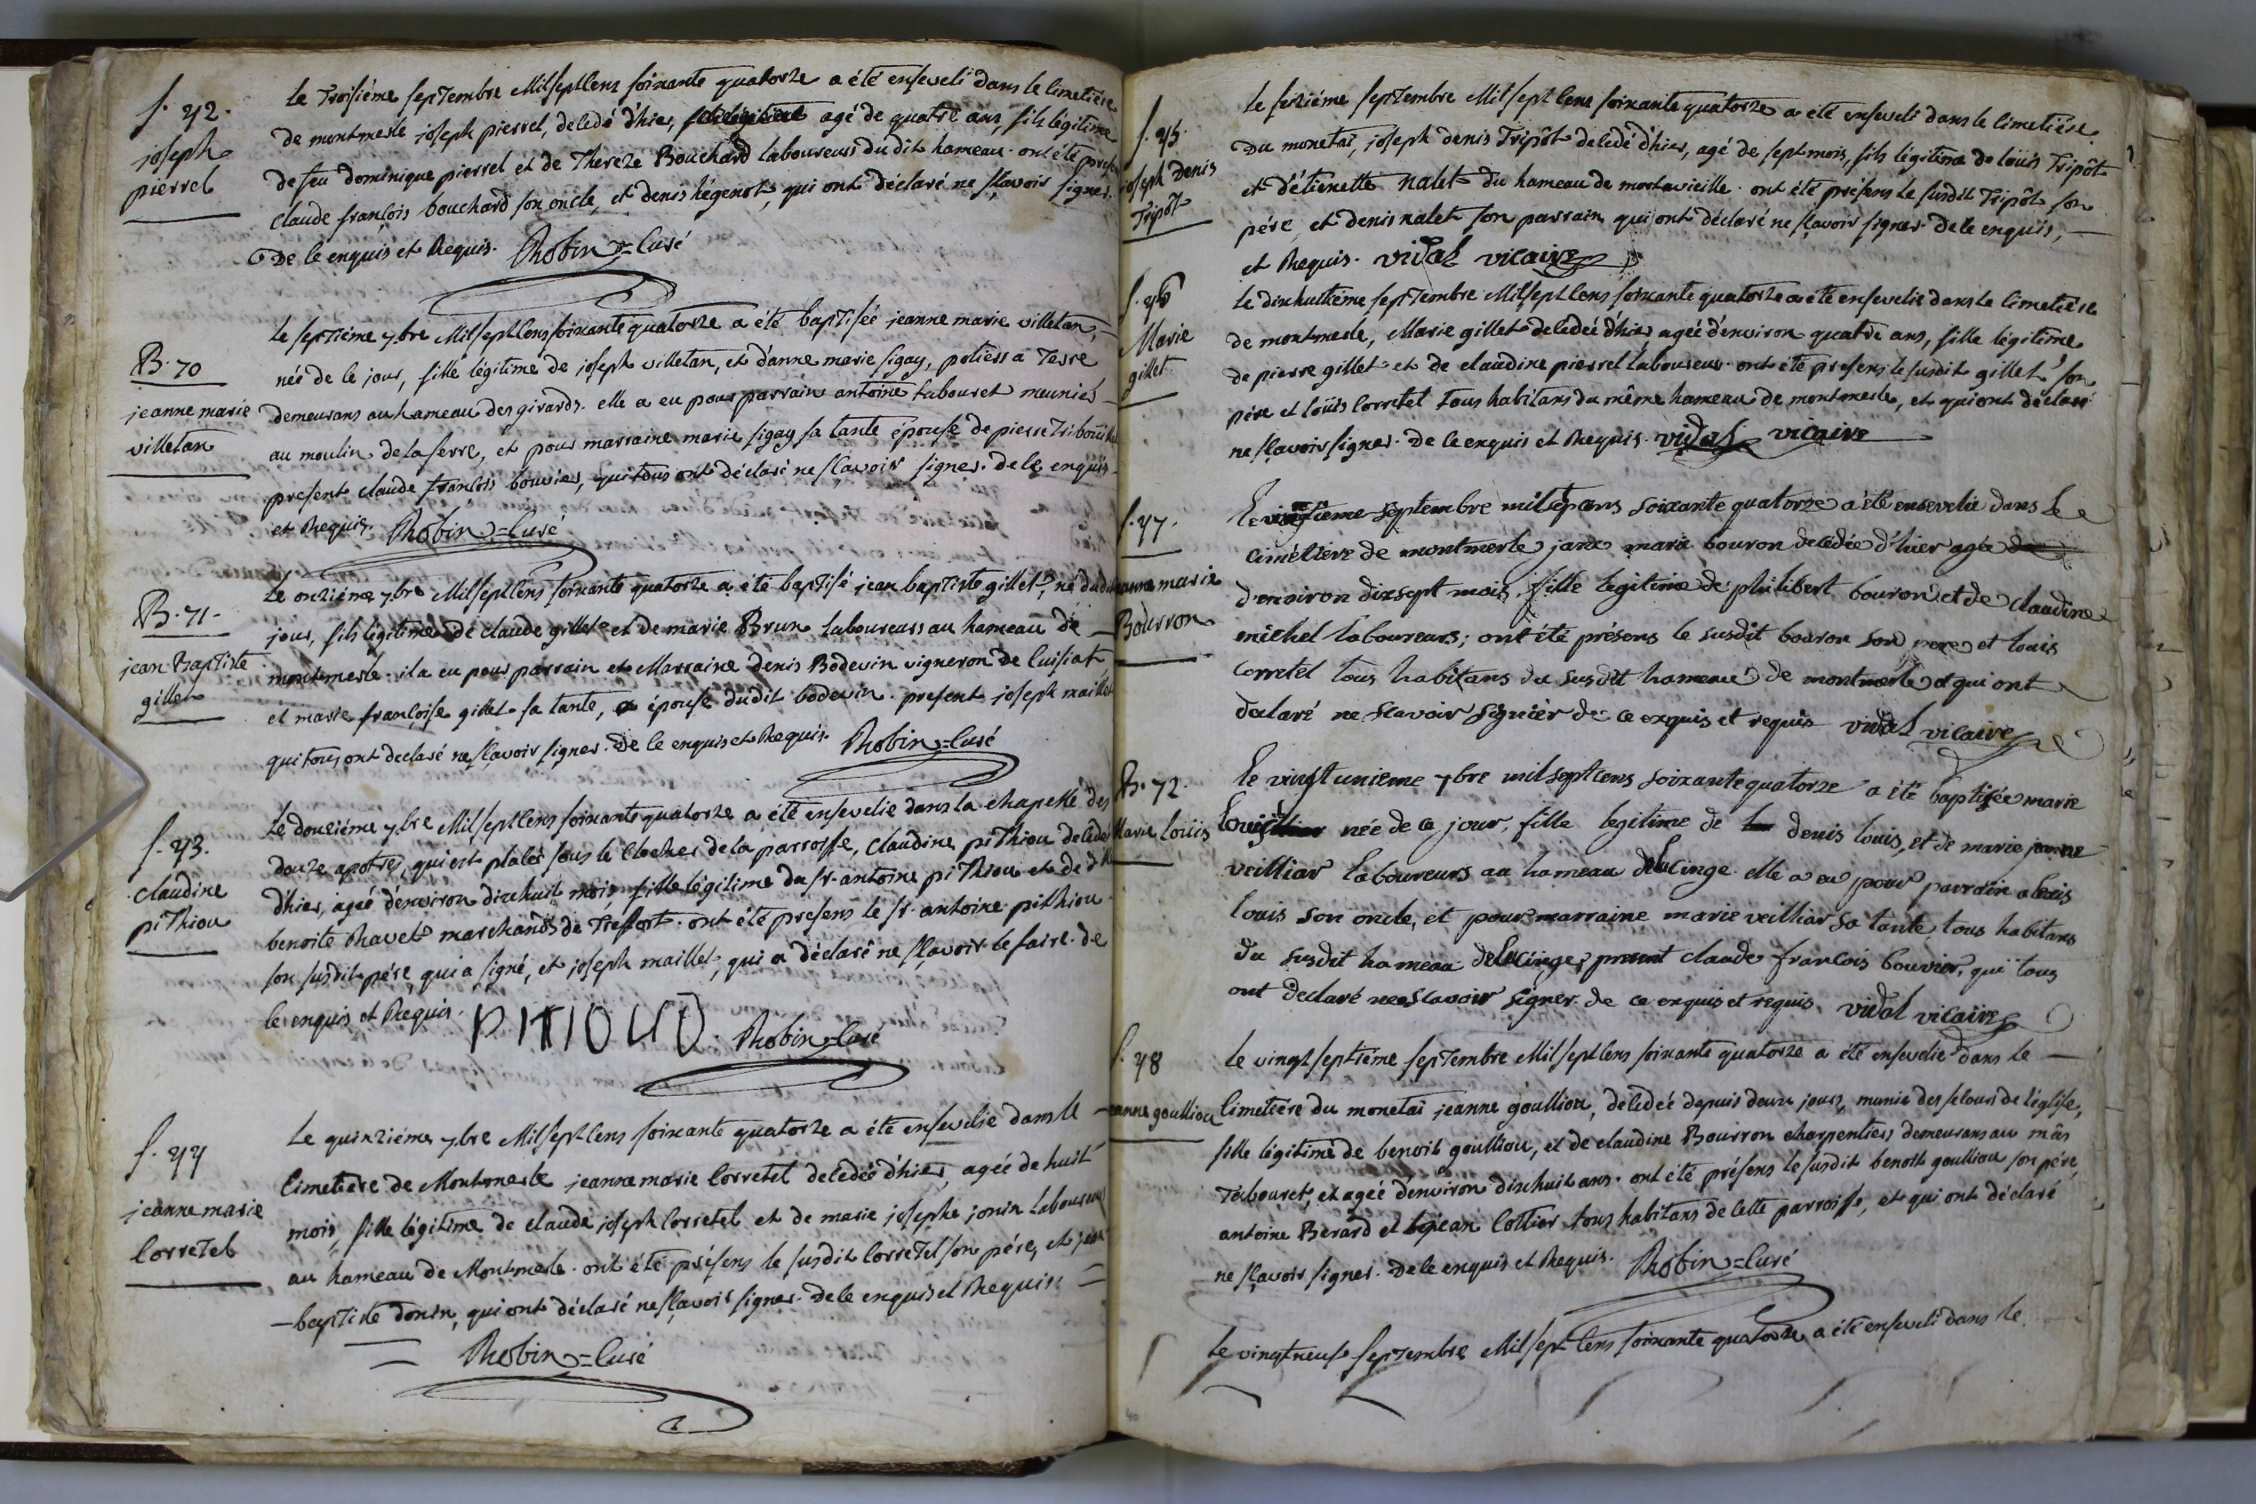 f. 42.
joseph
pierrel
Le Troisiéme septembre Mil sept Cens soixante quatorze a été enseveli dans le Cimetiére
de montmerle joseph pierrel, décédé d'hier, agé de quatre ans, fils légitime
de feu dominique pierrel et de Thereze Bouchard laboureurs du dit hameau. ont été
claude françois bouchard son oncle, et denis hégenot, qui ont déclaré ne sçavoir signer.
De ce enquis et Requis. Robin = Curé
B. 70
jeanne marie
villetan
Le septiéme 7bre Mil sept Cens soixante quatorze a été baptisée jeanne marie villetan,
née de ce jour, fille légitime de joseph villetan, et d'anne marie sigay, potiers a Terre
demeurans au hameau des girards. elle a eu pour parrain antoine tabouret meunier
au moulin de la serre, et pour marraine marie sigay sa tante épouse de pierre
present claude françois bouvier, qui tous ont déclaré ne sçavoir signer. de ce enquis
et Requis. Robin = Curé
B. 71.
jean Baptiste
gillet
Le onziéme 7bre Mil sept Cens soixante quatorze a été baptisé jean baptiste gillet, né dudit
jour, fils légitime de claude gillet et de marie Brun laboureurs au hameau de
montmerle. il a eu pour parrain et Marraine denis Bodevin vigneron de Cuisiat
et marie françoise gillet sa tante, épouse dudit bodevin. present joseph maillet
qui tous ont declaré ne sçavoir signer. De ce enquis et Requis. Robin = Curé
f. 43.
claudine
piThiou
Le douziéme 7bre Mil sept Cens soixante quatorze a été ensevelie dans la chapelle des
douze apotres, qui est placée sous le Clocher de la parroisse, Claudine piThiou décédée
d'hier, agée d'environ dix huit mois, fille légitime du sr. antoine piThiou et de dlle
benoite Ravet marchands de Treffort. ont été presens le sr. antoine pithiou
son susdit pére, qui a signé, et joseph maillet, qui a déclaré ne sçavoir le faire. de
ce enquis et Requis. PITIOUD. Robin = Curé
f. 44
jeanne marie
Corretel
Le quinziéme 7bre Mil sept Cens soixante quatorze a été ensevelie dans le
Cimetiére de Montmerle jeanne marie Corretel décédée d'hier, agée de huit
mois, fille légitime de claude joseph Corretel et de marie josephe jonin laboureurs
au hameau de Montmerle. ont été présens le susdit Corretel son pére, et jean
baptiste donin, qui ont déclaré ne sçavoir signer. de ce enquis et Requis
Robin = Curé
f. 45.
joseph Denis
Tripôt
Le seziéme septembre Mil sept Cens soixante quatorze a été enseveli dans le Cimetiére
du monetai, joseph denis Tripôt décédé d'hier, agé de sept mois, fils légitime de loüis Tripôt
et d'étienette nalet du hameau de mortavieille. ont été présens le susdit Tripôt son
pére, et denis nalet son parrain qui ont déclaré ne sçavoir signer. de ce enquis,
et Requis. vidal vicaire
f. 46
Marie
gillet
Le dixhuitiéme septembre Mil sept Cens soixante quatorze a été ensevelie dans le Cimetiére
de montmerle, Marie gillet décédée d'hier, agée d'environ quatre ans, fille légitime
de pierre gillet et de claudine pierrel laboureurs. ont été presens le susdit gillet son
pére et loüis Corretel tous habitans du même hameau de montmerle, et qui ont déclaré
ne sçavoir signer. de ce enquis et Requis. vidal vicaire
f. 47.
jeanne marie
Bourron
le vingtieme septembre mil sept cens soixante quatorze a été ensevelie dans le
cimétière de montmerle jane marie bouron decedée d'hier agée
d'environ dix sept mois fille legitime de philibert bouron et de claudine
michel laboureurs; ont été présens le susdit bouron son pere et louis
corretel tous habitans du susdit hameau de montmerle et qui ont
declaré ne scavoir signer de ce enquis et requis vidal vicaire
B. 72.
Marie loüis
le vingt unieme 7bre mil sept cens soixante quatorze a été baptisée marie
louis née de ce jour, fille legitime de denis louis, et de marie jeanne
veilliar laboureurs au hameau de lacinge. elle a eu pour parrain alexis
louis son oncle, et pour marraine marie veilliar sa tante tous habitans
du susdit hameau de lacinge, present claude francois bouvier, qui tous
ont declaré ne scavoir signer. de ce enquis et requis vidal vicaire
f. 48
jeanne goulliou
Le vingt septiéme septembre Mil sept Cens soixante quatorze a été ensevelie dans le
Cimetiére du monetai jeanne goulliou, décédée depuis deux jours, munie des secours de l'église,
fille légitime de benoit goulliou, et de claudine Bourron charpentiers demeurans au mâs
Tabouret, et agée d'environ dixhuit ans. ont été présens le susdit benoit goulliou son pére,
antoine Berard et jean Cottier tous habitans de cette parroisse, et qui ont déclaré
ne sçavoir signer. de ce enquis et Requis. Robin = Curé
Le vingtneuf septembre Mil sept Cens soixante quatorze a été enseveli dans le